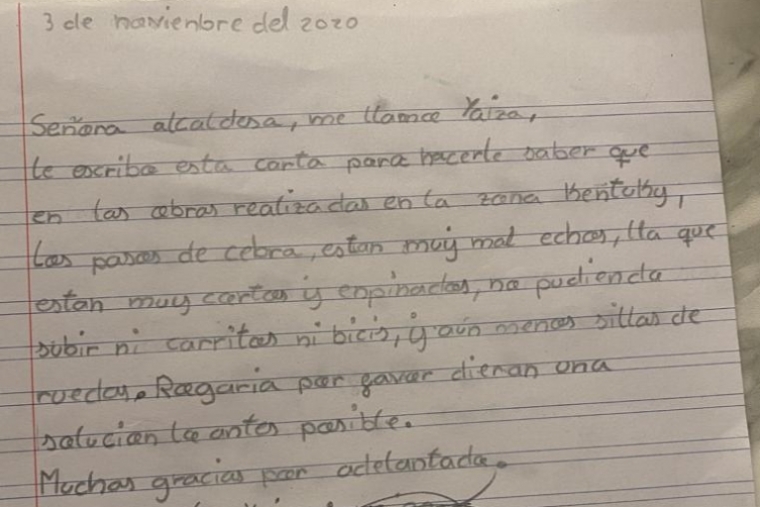 3 de novienbre del 2020
Señora alcaldesa, me llamo Yaiza,
le escribo esta carta para hacerle saber que
en las obras realizadas en la zona Kentuky,
Los pasos de cebra, estan muy mal echos, lla que
estan muy cortos y enpinados, no pudiendo
subir ni carritos ni bicis, y aun menos sillas de
ruedas. Rogaria por favor dieran una
solucion lo antes posible.
Muchas gracias por adelantado.